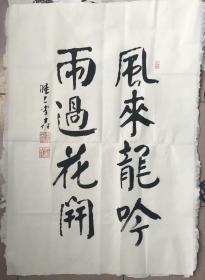 風來龍吟
雨過花開